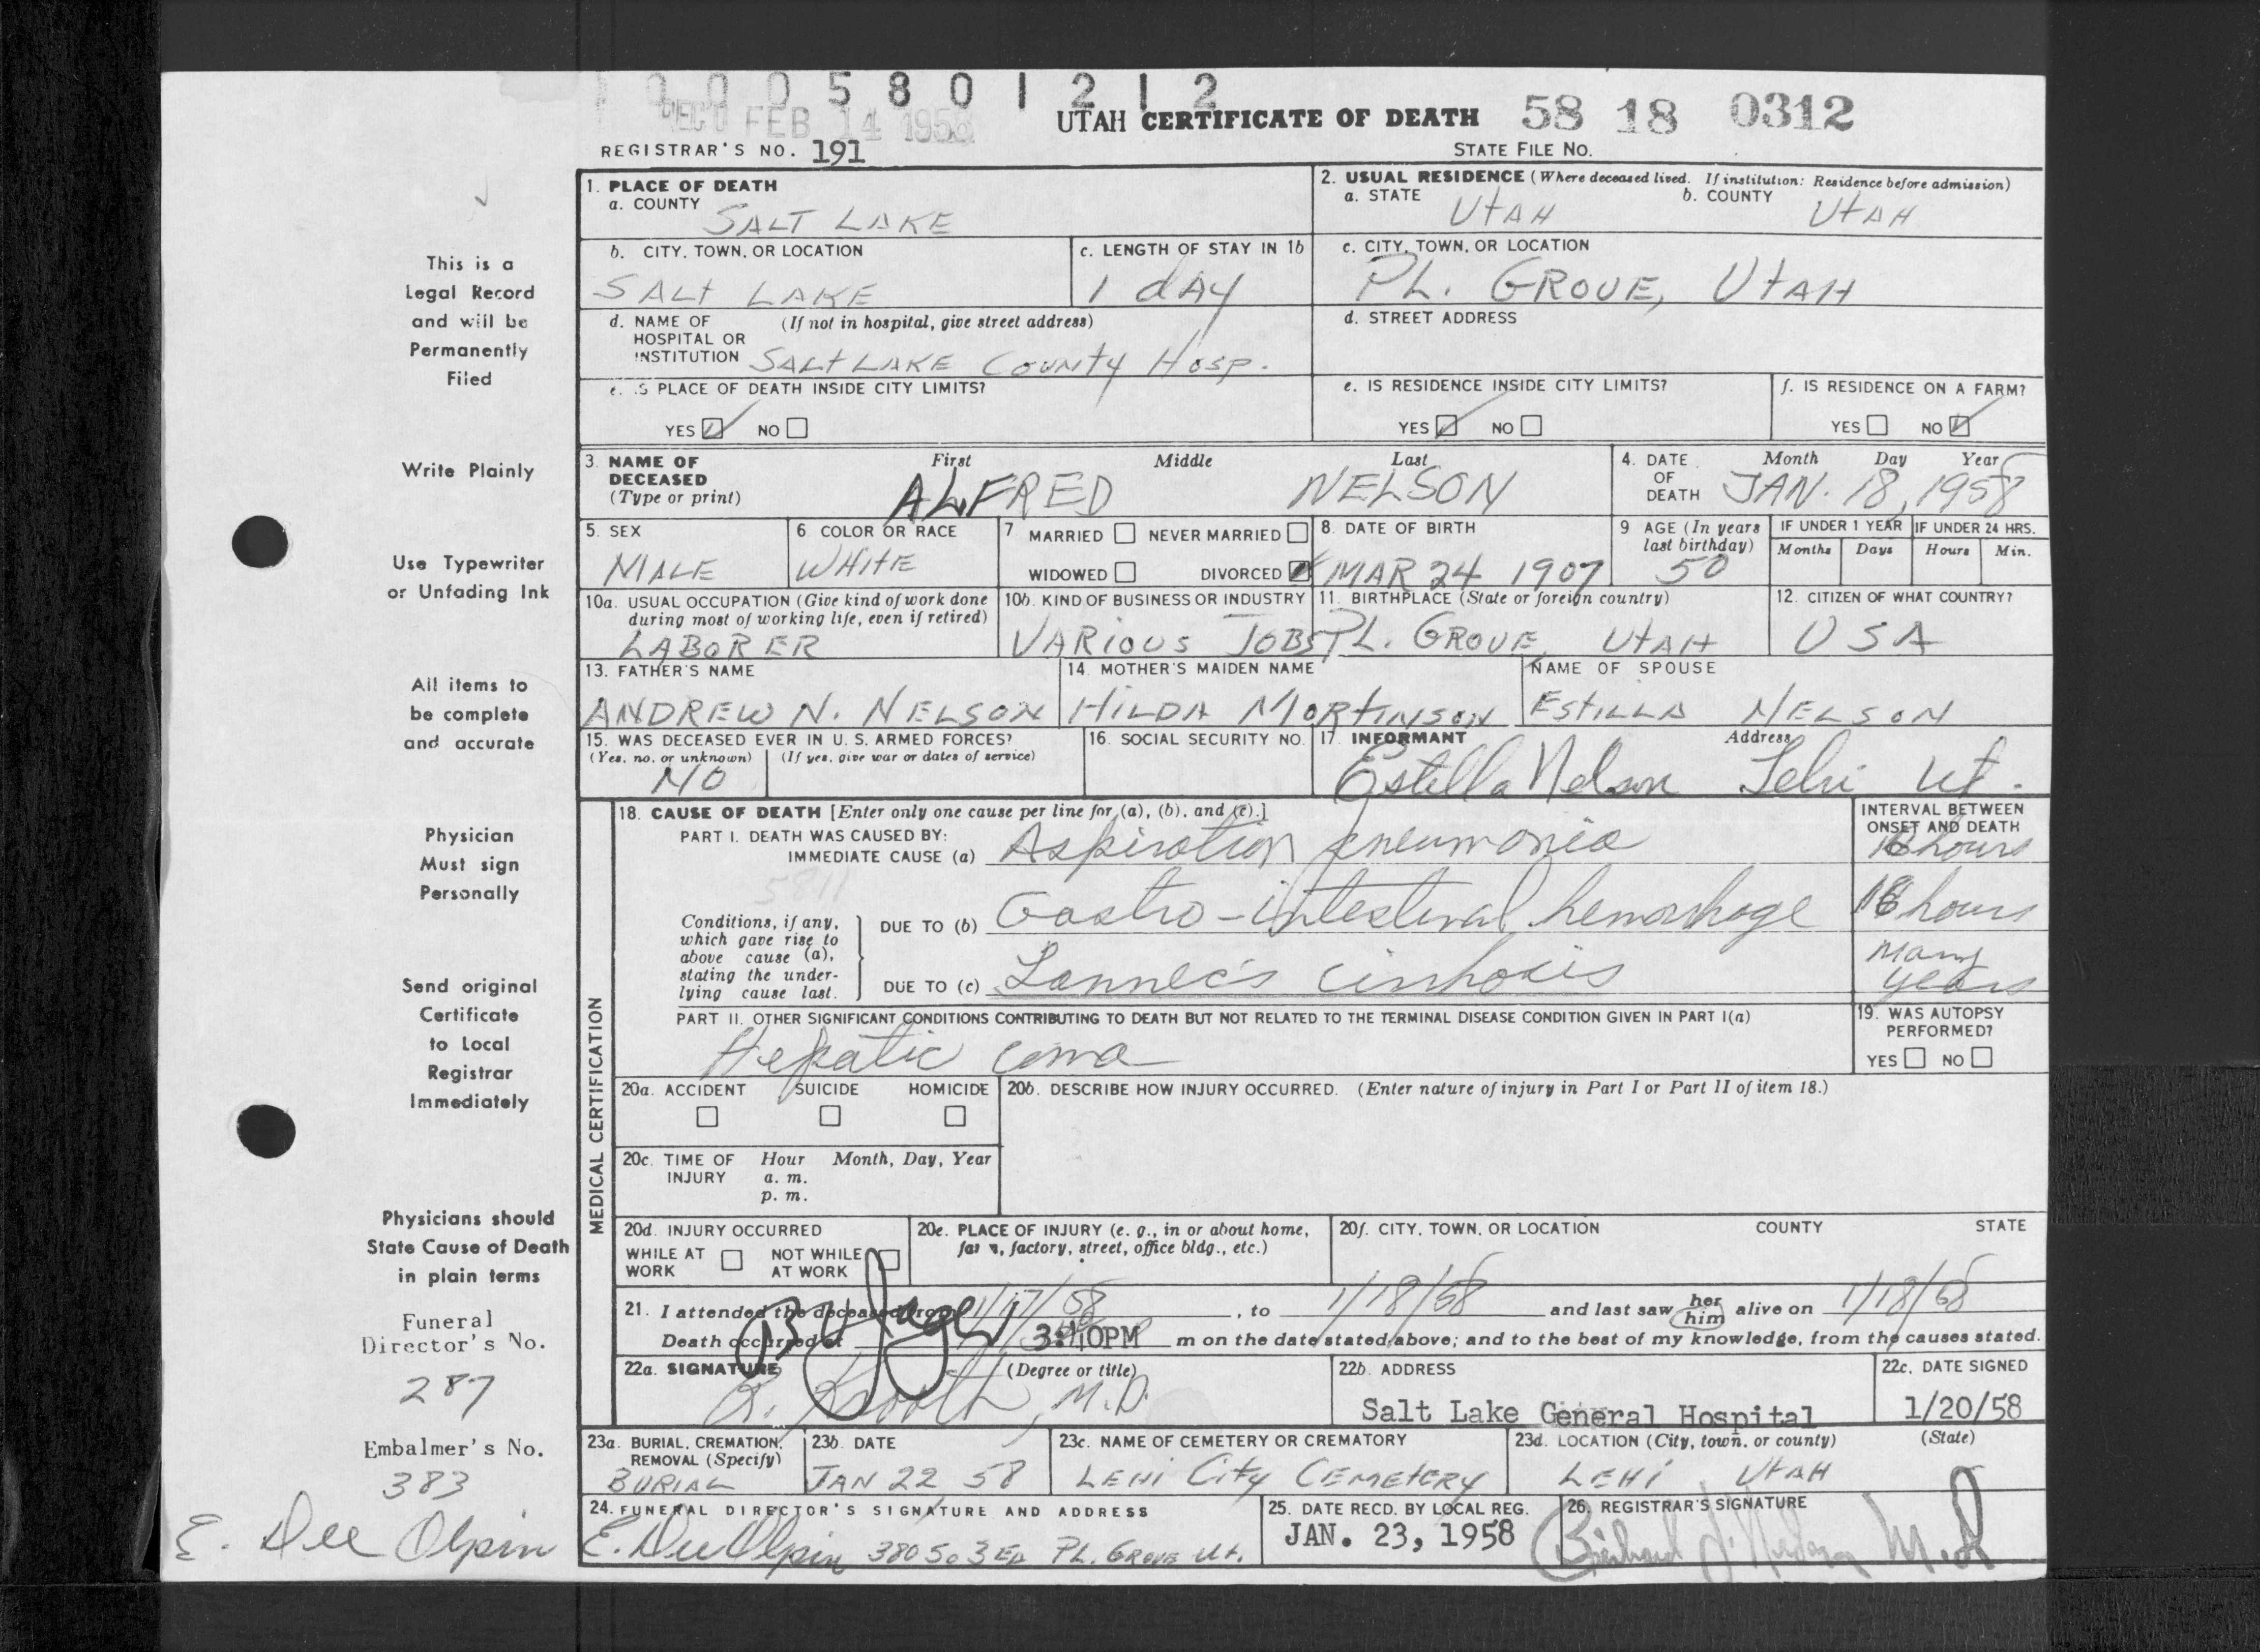 1 0 0 0 5 8 0 1 2 1 2
REC'D FEB 14 1958
UTAH CERTIFICATE OF DEATH 58 18 0312
REGISTRAR'S NO. 191 STATE FILE NO.
1. PLACE OF DEATH
a. COUNTY SALT LAKE
2. USUAL RESIDENCE (Where deceased lived. If institution: Residence before admission)
a. STATE UTAH b. COUNTY UTAH
b. CITY, TOWN, OR LOCATION SALT LAKE
c. LENGTH OF STAY IN 1b 1 dAY
c. CITY, TOWN, OR LOCATION PL. GROVE, UTAH
d. NAME OF HOSPITAL OR INSTITUTION (If not in hospital, give street address) SALT LAKE COUNTY HOSP.
d. STREET ADDRESS
e. IS PLACE OF DEATH INSIDE CITY LIMITS?
YES ☑ NO ☐
e. IS RESIDENCE INSIDE CITY LIMITS?
YES ☑ NO ☐
f. IS RESIDENCE ON A FARM?
YES ☐ NO ☑
3. NAME OF DECEASED (Type or print) First Middle Last
ALFRED NELSON
4. DATE OF DEATH Month Day Year
JAN. 18, 1958
5. SEX MALE
6. COLOR OR RACE WHITE
7. MARRIED ☐ NEVER MARRIED ☐
WIDOWED ☐ DIVORCED ☑
8. DATE OF BIRTH MAR 24 1907
9. AGE (In years last birthday) 50
IF UNDER 1 YEAR Months Days
IF UNDER 24 HRS. Hours Min.
10a. USUAL OCCUPATION (Give kind of work done during most of working life, even if retired) LABORER
10b. KIND OF BUSINESS OR INDUSTRY VARIOUS JOBS
11. BIRTHPLACE (State or foreign country) PL. GROVE, UTAH
12. CITIZEN OF WHAT COUNTRY? USA
13. FATHER'S NAME ANDREW N. NELSON
14. MOTHER'S MAIDEN NAME HILDA MORTINSON
NAME OF SPOUSE ESTILLA NELSON
15. WAS DECEASED EVER IN U. S. ARMED FORCES?
(Yes, no, or unknown) (If yes, give war or dates of service)
NO
16. SOCIAL SECURITY NO.
17. INFORMANT Address
Estella Nelson Lehi Ut.
MEDICAL CERTIFICATION
18. CAUSE OF DEATH [Enter only one cause per line for (a), (b), and (c).]
INTERVAL BETWEEN ONSET AND DEATH
PART I. DEATH WAS CAUSED BY:
IMMEDIATE CAUSE (a) Aspiration pneumonia hours
5811
Conditions, if any, which gave rise to above cause (a), stating the underlying cause last.
DUE TO (b) Gastro-intestinal hemorrhage hours
DUE TO (c) Lannec's cirrhosis many years
PART II. OTHER SIGNIFICANT CONDITIONS CONTRIBUTING TO DEATH BUT NOT RELATED TO THE TERMINAL DISEASE CONDITION GIVEN IN PART I(a)
Hepatic coma
19. WAS AUTOPSY PERFORMED?
YES ☐ NO ☐
20a. ACCIDENT ☐ SUICIDE ☐ HOMICIDE ☐
20b. DESCRIBE HOW INJURY OCCURRED. (Enter nature of injury in Part I or Part II of item 18.)
20c. TIME OF INJURY Hour a. m. p. m. Month, Day, Year
20d. INJURY OCCURRED
WHILE AT WORK ☐ NOT WHILE AT WORK ☐
20e. PLACE OF INJURY (e. g., in or about home, farm, factory, street, office bldg., etc.)
20f. CITY, TOWN, OR LOCATION COUNTY STATE
21. I attended the deceased from 1/17/58, to 1/18/58 and last saw her him alive on 1/18/58
Death occurred at 3:40PM m on the date stated above; and to the best of my knowledge, from the causes stated.
22a. SIGNATURE (Degree or title) M.D.
22b. ADDRESS Salt Lake General Hospital
22c. DATE SIGNED 1/20/58
23a. BURIAL, CREMATION, REMOVAL (Specify) BURIAL
23b. DATE JAN 22 58
23c. NAME OF CEMETERY OR CREMATORY LEHI CITY CEMETERY
23d. LOCATION (City, town, or county) (State) LEHI UTAH
24. FUNERAL DIRECTOR'S SIGNATURE AND ADDRESS
E. Dee Olpin 380 So 3 Ea PL. GROVE Ut.
25. DATE RECD. BY LOCAL REG. JAN. 23, 1958
26. REGISTRAR'S SIGNATURE M.D.
This is a
Legal Record
and will be
Permanently
Filed
Write Plainly
Use Typewriter
or Unfading Ink
All items to
be complete
and accurate
Physician
Must sign
Personally
Send original
Certificate
to Local
Registrar
Immediately
Physicians should
State Cause of Death
in plain terms
Funeral
Director's No.
287
Embalmer's No.
383
E. Dee Olpin